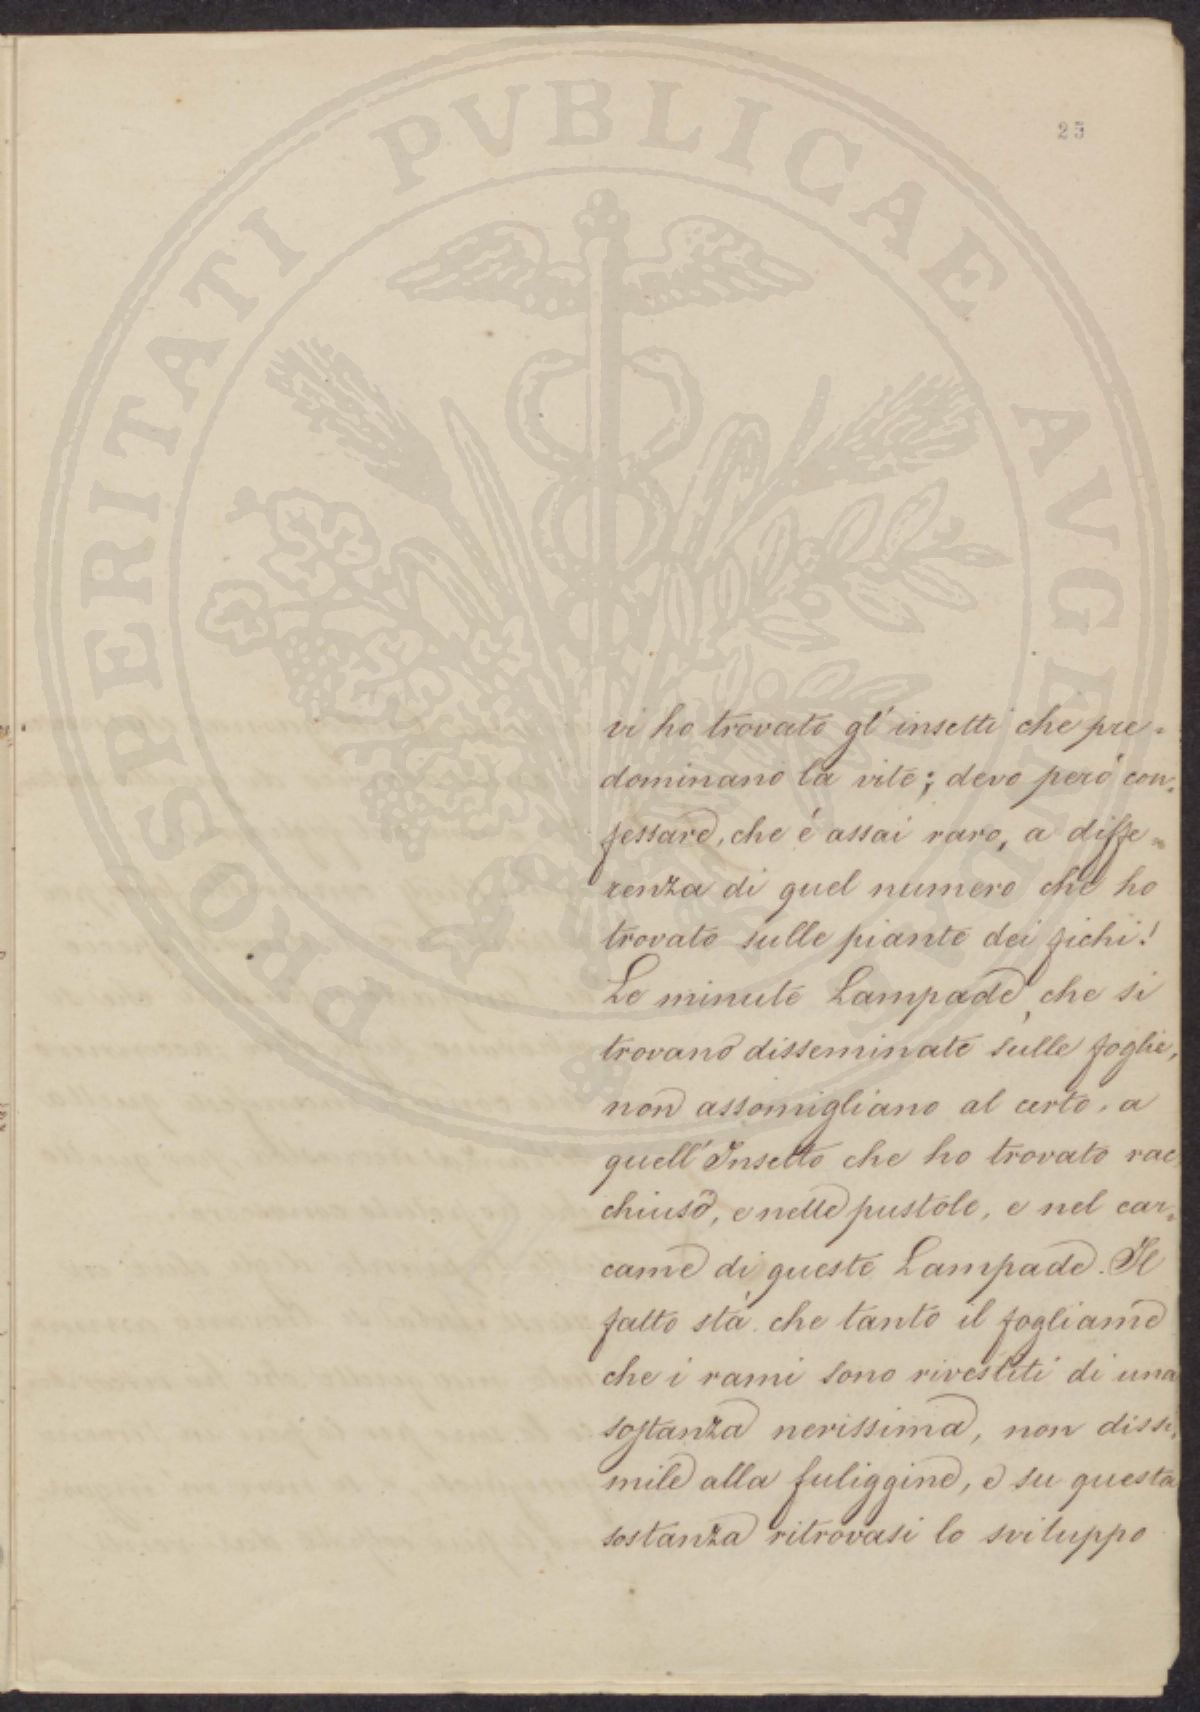 PROSPERITATI PUBLICAE AVGENDAE
25
vi ho trovato gl' insetti che pre-
dominano la vite; devo però con-
fessare, che è assai raro, a diffe-
renza di quel numero che ho
trovato sulle piante dei fichi!
Le minute Lampade, che si
trovano disseminate sulle foglie,
non assomigliano al certo, a
quell' Insetto che ho trovato rac
chiuso, e nelle pustole, e nel car-
came di queste Lampade. Il
fatto stà che tanto il fogliame
che i rami sono rivestiti di una
sostanza nerissima, non dissi-
mile alla fuliggine, e su questa
sostanza ritrovasi lo sviluppo